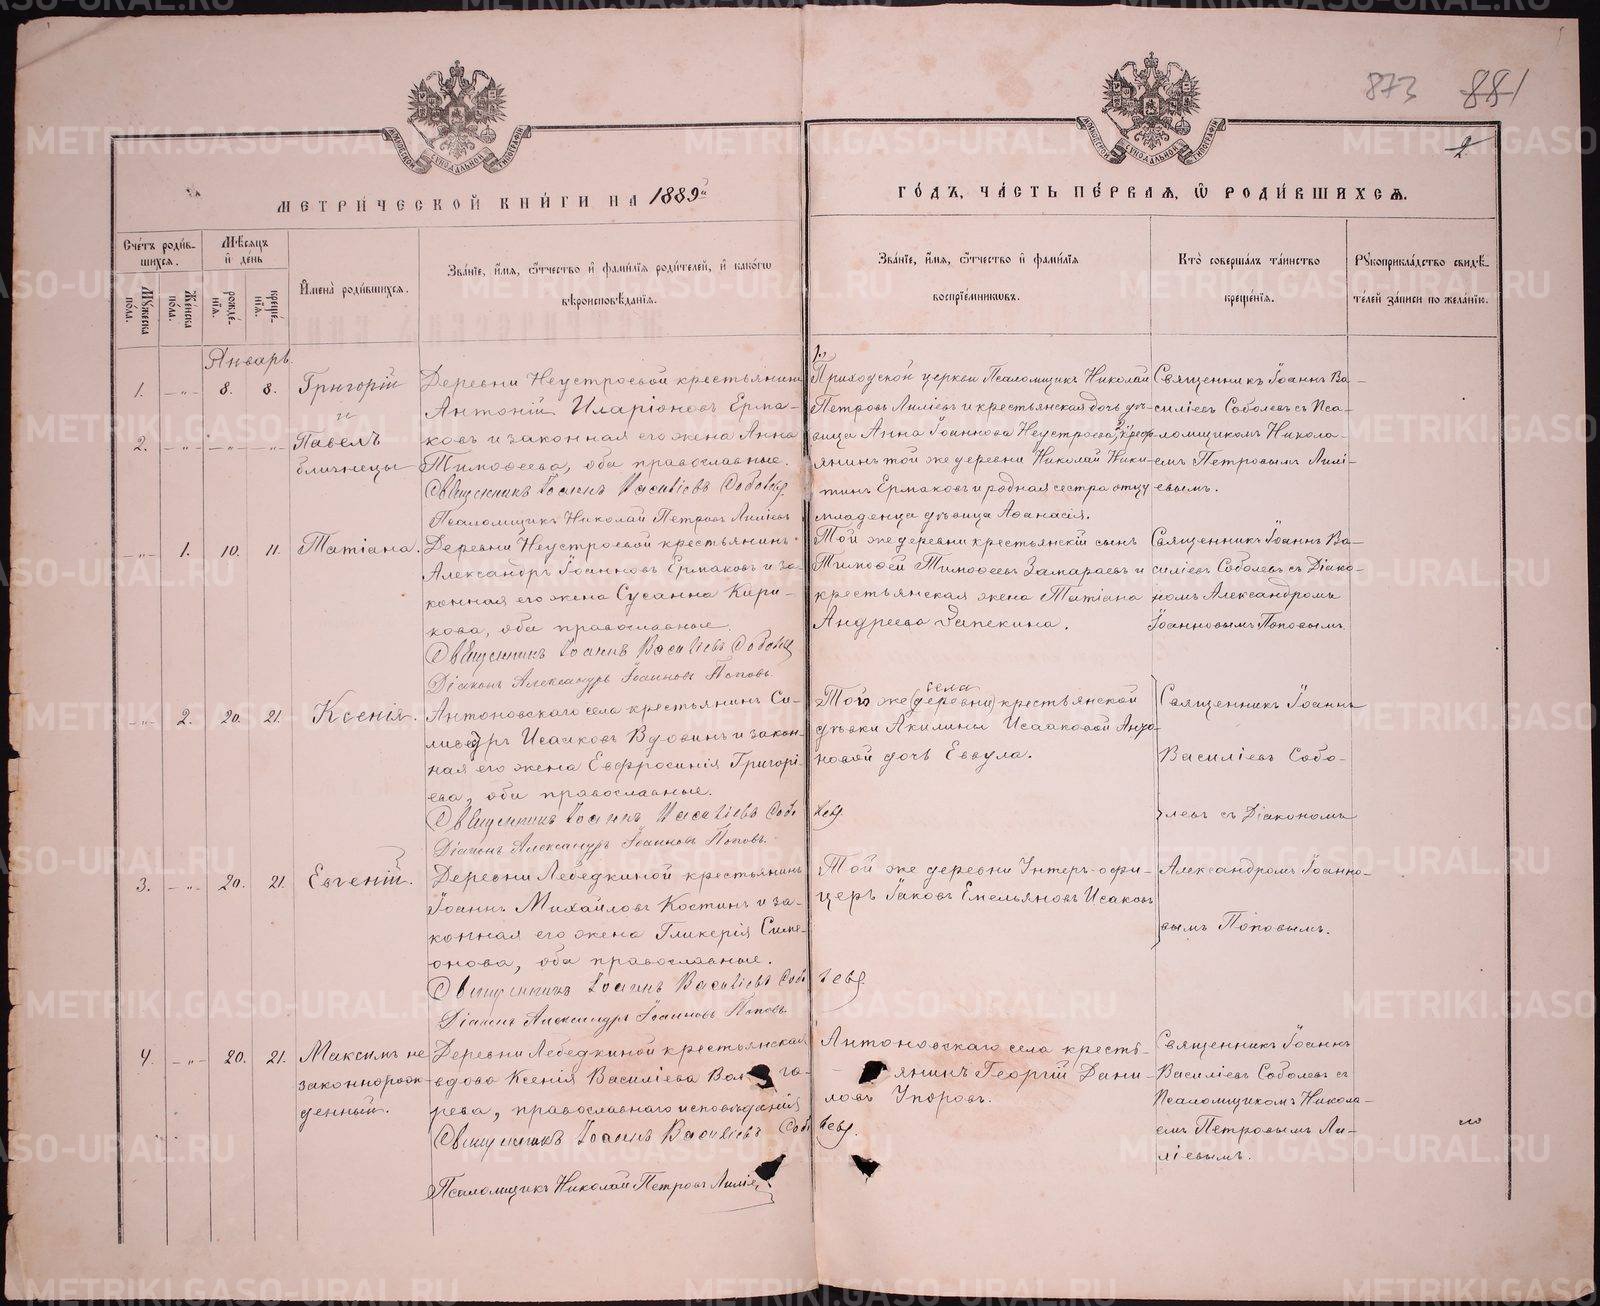 873 881
2
МОСКОВСКОЙ СѴНОДАЛЬНОЙ ТИПОГРАФІИ
МОСКОВСКОЙ СѴНОДАЛЬНОЙ ТИПОГРАФІИ
МЕТРИ́ЧЕСКОЙ КНИ́ГИ НА 1889й
ГО́ДЪ, ЧА́СТЬ ПЕ́РВАѦ, Ѿ РОДИ́ВШИХСѦ.
Сче́тъ роди́в-
шихсѧ.
Мѣ́сѧцъ
и҆ де́нь
Мꙋ́жеска
по́ла.
Же́нска
по́ла.
рожде́-
нїѧ.
креще́-
нїѧ.
И҆мена̀ роди́вшихсѧ.
Зва́нїе, и҆́мѧ, ѻ҆́тчество и҆ фами́лїѧ роди́телей, и҆ како́гѡ
вѣроисповѣ́данїѧ.
Зва́нїе, и҆́мѧ, ѻ҆́тчество и҆ фами́лїѧ
воспрїе́мниковъ.
Кто̀ соверша́лъ та́инство
креще́нїѧ.
Рꙋкоприкла́дство свидѣ́-
телей за́писи по жела́нїю.
Январь.
1. -"- 8. 8. Григорій
и
2. -"- -"- -"- Павелъ
близнецы
Деревни Неустроевой крестьянинъ
Антоній Иларіоновъ Ерма-
ковъ и законная его жена Анна
Тимоѳеева, оба православные.
Священникъ Іоаннъ Василіевъ Соболевъ
Псаломщикъ Николай Петровъ Лиліевъ
Приходской церкви Псаломщикъ Николай
Петровъ Лиліевъ и крестьянская дочь дѣ-
вица Анна Іоаннова Неустроева, 2, крест
янинъ той же деревни Николай Ники-
тинъ Ермаковъ и родная сестра отцу
младенца дѣвица Аѳанасія.
Священникъ Іоаннъ Ва-
силіевъ Соболевъ съ Пса-
ломщикомъ Никола-
емъ Петровымъ Лилі-
евымъ.
-"- 1. 10. 11. Татіана.
Деревни Неустроевой крестьянинъ
Александръ Іоанновъ Ермаковъ и за-
конная его жена Сусанна Кири-
кова, оба православные.
Священникъ Іоаннъ Василіевъ Соболевъ
Діаконъ Александръ Іоанновъ Поповъ.
Той же деревни крестьянскій сынъ
Тимоѳей Тимоѳеевъ Замараевъ и
крестьянская жена Татіана
Андреева Запекина.
Священникъ Іоаннъ Ва-
силіевъ Соболевъ съ Діако-
номъ Александромъ
Іоанновымъ Поповымъ.
-"- 2. 20. 21. Ксенія.
Антоновскаго села крестьянинъ Си-
ливестръ Исааковъ Вдовинъ и закон-
ная его жена Евфросинія Григорі-
ева, оба православные.
Священникъ Іоаннъ Василіевъ Соболевъ
Діаконъ Александръ Іоанновъ Поповъ.
села
Того же (деревни) крестьянской
дѣвки Акилины Исааковой Андро-
новой дочь Еввула.
Священникъ Іоаннъ
Василіевъ Собо-
левъ съ Діакономъ
Александромъ Іоанно-
вымъ Поповымъ.
3. -"- 20. 21. Евгеній.
Деревни Лебедкиной крестьянинъ
Іоаннъ Михайловъ Костинъ и за-
конная его жена Гликерія Симе-
онова, оба православные.
Священникъ Іоаннъ Василіевъ Соболевъ
Діаконъ Александръ Іоанновъ Поповъ
Той же деревни Унтеръ-офи-
церъ Іаковъ Емельяновъ Исаковъ
4. -"- 20. 21. Максимъ не
законнорож-
денный.
Деревни Лебедкиной крестьянская
вдова Ксенія Василіева
рева, православнаго исповѣданія
Священникъ Іоаннъ Василіевъ Соболевъ.
Псаломщикъ Николай Петровъ Лиліев
Антоновскаго села кресть-
янинъ Георгій Дани-
ловъ Упоровъ.
Священникъ Іоаннъ
Василіевъ Соболевъ съ
Псаломщикомъ Никола-
емъ Петровымъ Ли-
ліевымъ.
METRIKI.GASO-URAL.RU